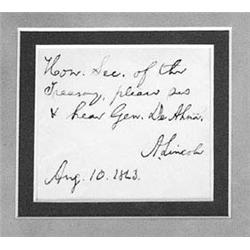 Hon. Sec. of the
Treasury, please see
& hear Gen. De Ahna.
A. Lincoln
Aug. 10. 1863.